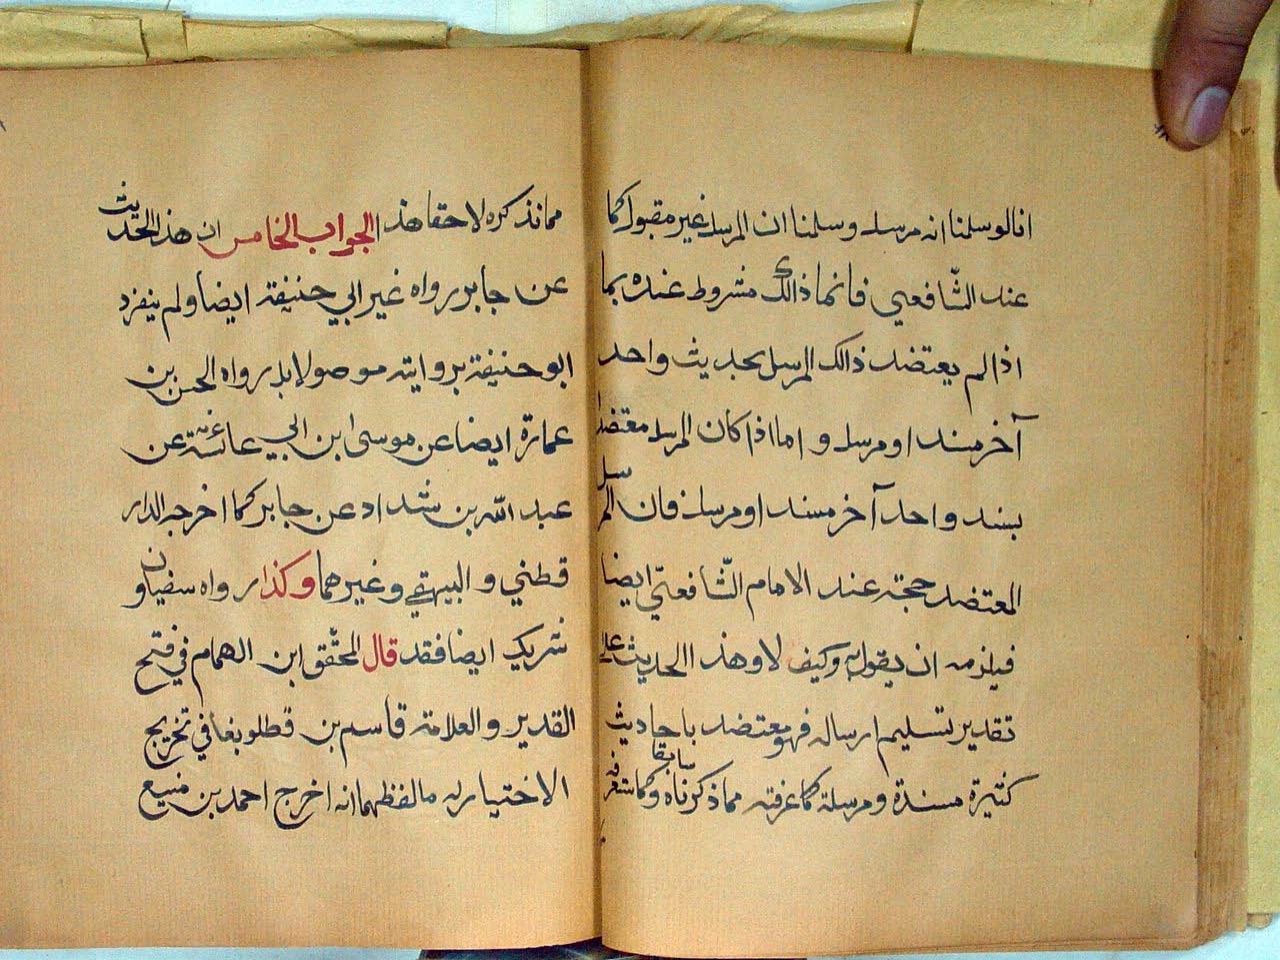 انا لو سلمنا انه مرسل وسلمنا ان المرسل غير مقبول كما
عند الشّافعي فانما ذالك مشروط عنده بما
اذا لم يعتضد ذالك المرسل بحديث واحد
آخر مسند او مرسل و اما اذا كان المرسل معتضدا
بسند واحد آخر مسند او مرسل فان المرسل
المعتضد حجته عند الامام الشّافعيّ ايضا
فيلزمه ان يقول به وكيف لا وهذا الحديث على
تقدير تسليم ارساله فهو معتضد باحاديث
كثيرة مسندة ومرسلة كما عرفته مما ذكرناه سابقا وكما ستعرفه
مما نذكره لاحقا هذا الجواب الخامس ان هذ الحديث
عن جابر رواه غير ابي حنيفة ايضا ولم ينفرد
ابو حنيفة بروايته موصولا بل رواه الحسن بن
عمارة ايضا عن موسى ابن ابي عائشة عن
عبد اللّه بن شداد عن جابر كما اخرجه الدار
قطني و البيهقي وغيرهما وكذا رواه سفيان و
شريك ايضا فقد قال المحقّق ابن الهمام في فتح
القدير و العلامة قاسم بن قطلوبغا في تخريج
الاختيار له ما لفظهما انه اخرج احمد بن منيع